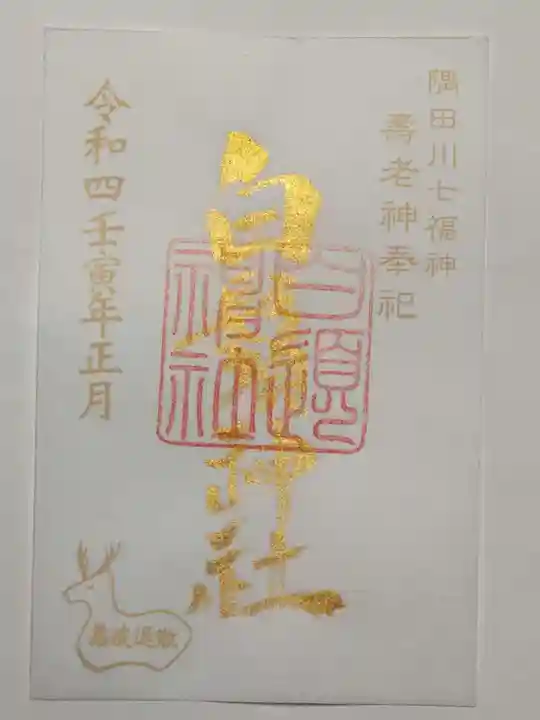 隅田川七福神
壽老神奉祀
白鬚神社
令和四壬寅年正月